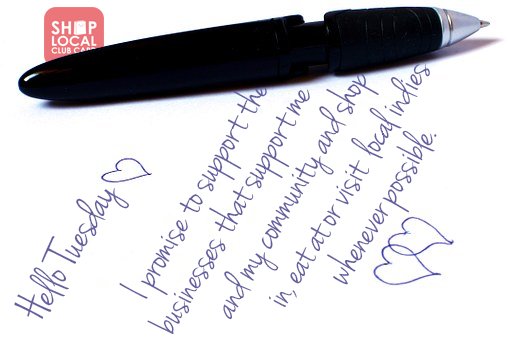 SHOP
LOCAL
CLUB CARD
Hello Tuesday
I promise to support the
businesses that support me
and my community and shop
in, eat at or visit local indies
whenever possible.